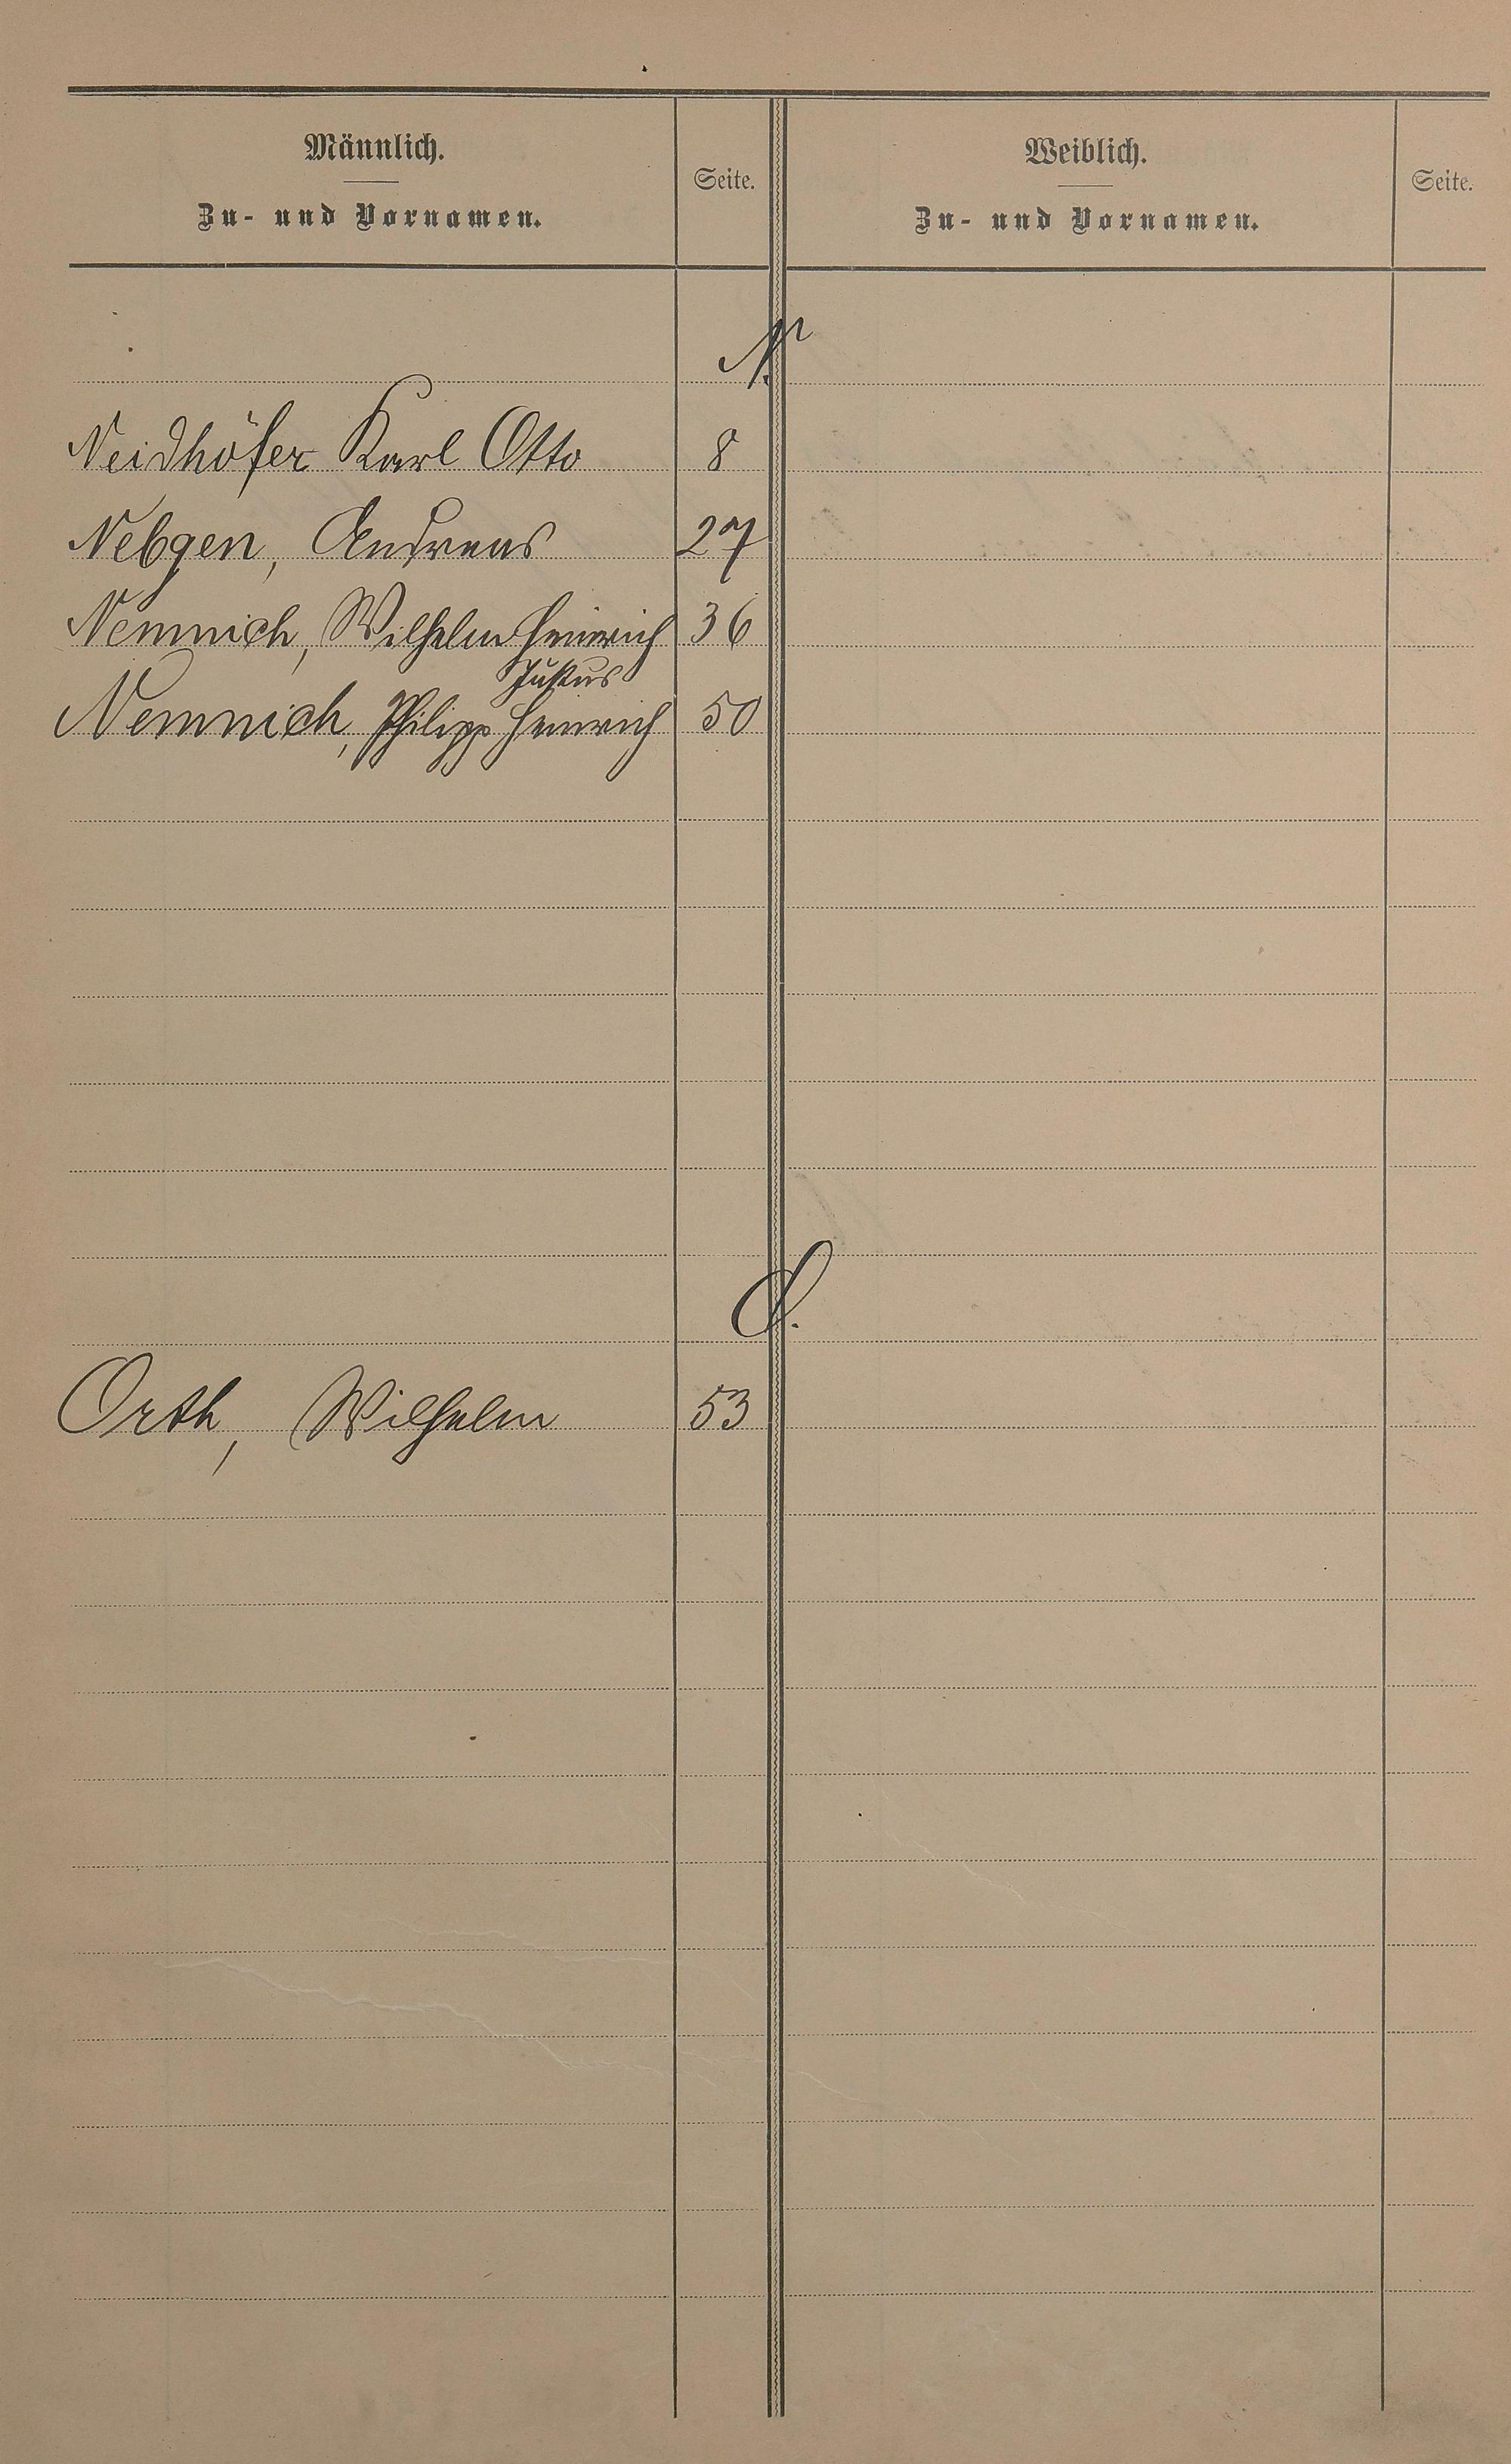 Männlich.
Zu- und Vornamen.
Seite.
Weiblich.
Zu- und Vornamen.
Seite.
N.
Neidhöfer Karl Otto 8
Nebgen, Andreas 27
Nemnich, Wilhelm Heinrich 36
Justus
Nemnich, Philipp Heinrich 50
O.
Orth, Wilhelm 53